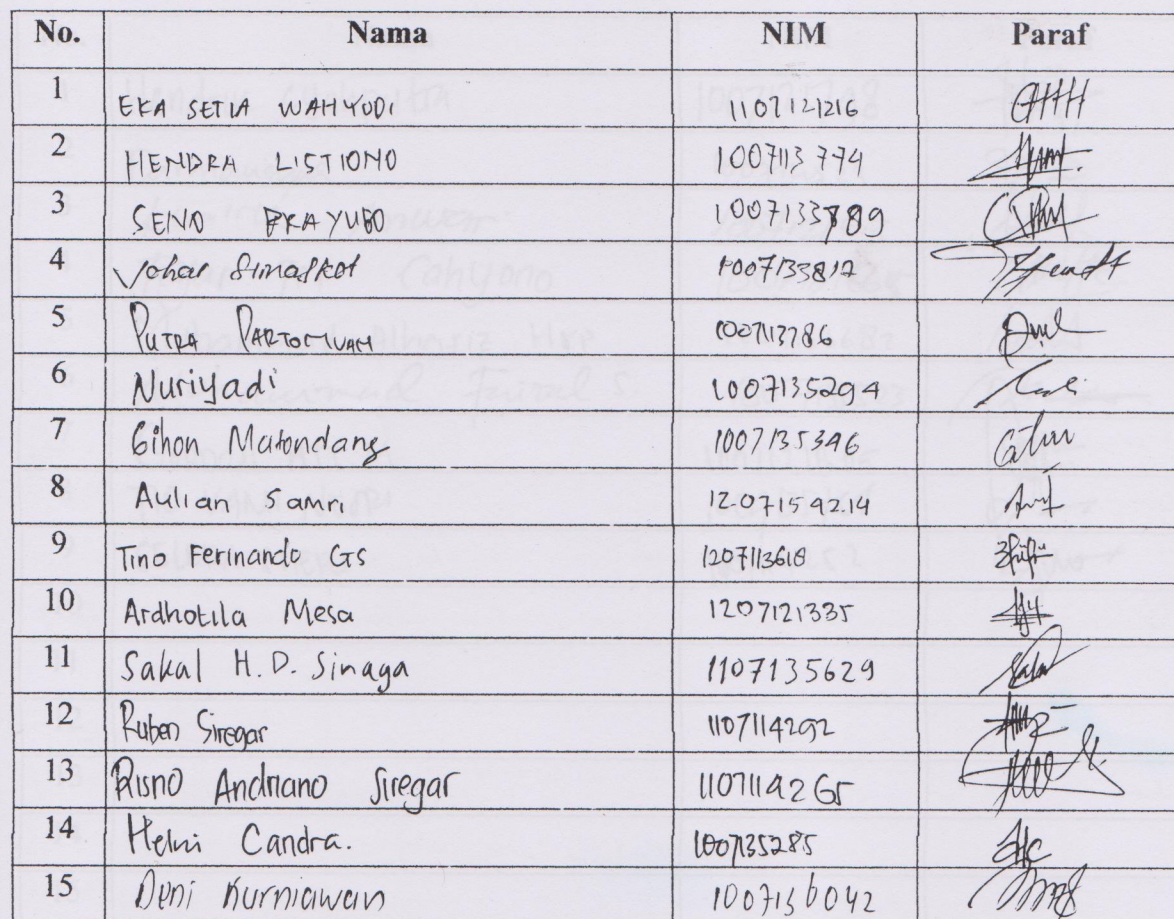 No. Nama NIM Paraf
1 EKA SETIA WAHYUDI 1107121216
2 HENDRA LISTIONO 1007113774
3 SENO PRAYUDO 1007133789
4 Johar Simatkot
5 PUTRA 1007113786
6 Nuriyadi 1007135294
7 Gihon Matondang 1007135346
8 Aulian Samri
9 Tino Fernando Gs 1207113618
10 Ardhotila Mesa 1207121335
11 Sakal H.D. Sinaga 1107135629
12 Ruben Siregar 1107114292
13 Risno Andriano Siregar 1107114265
14 Helmi Candra. 1007135285
15 Deni Kurniawan 1007136042